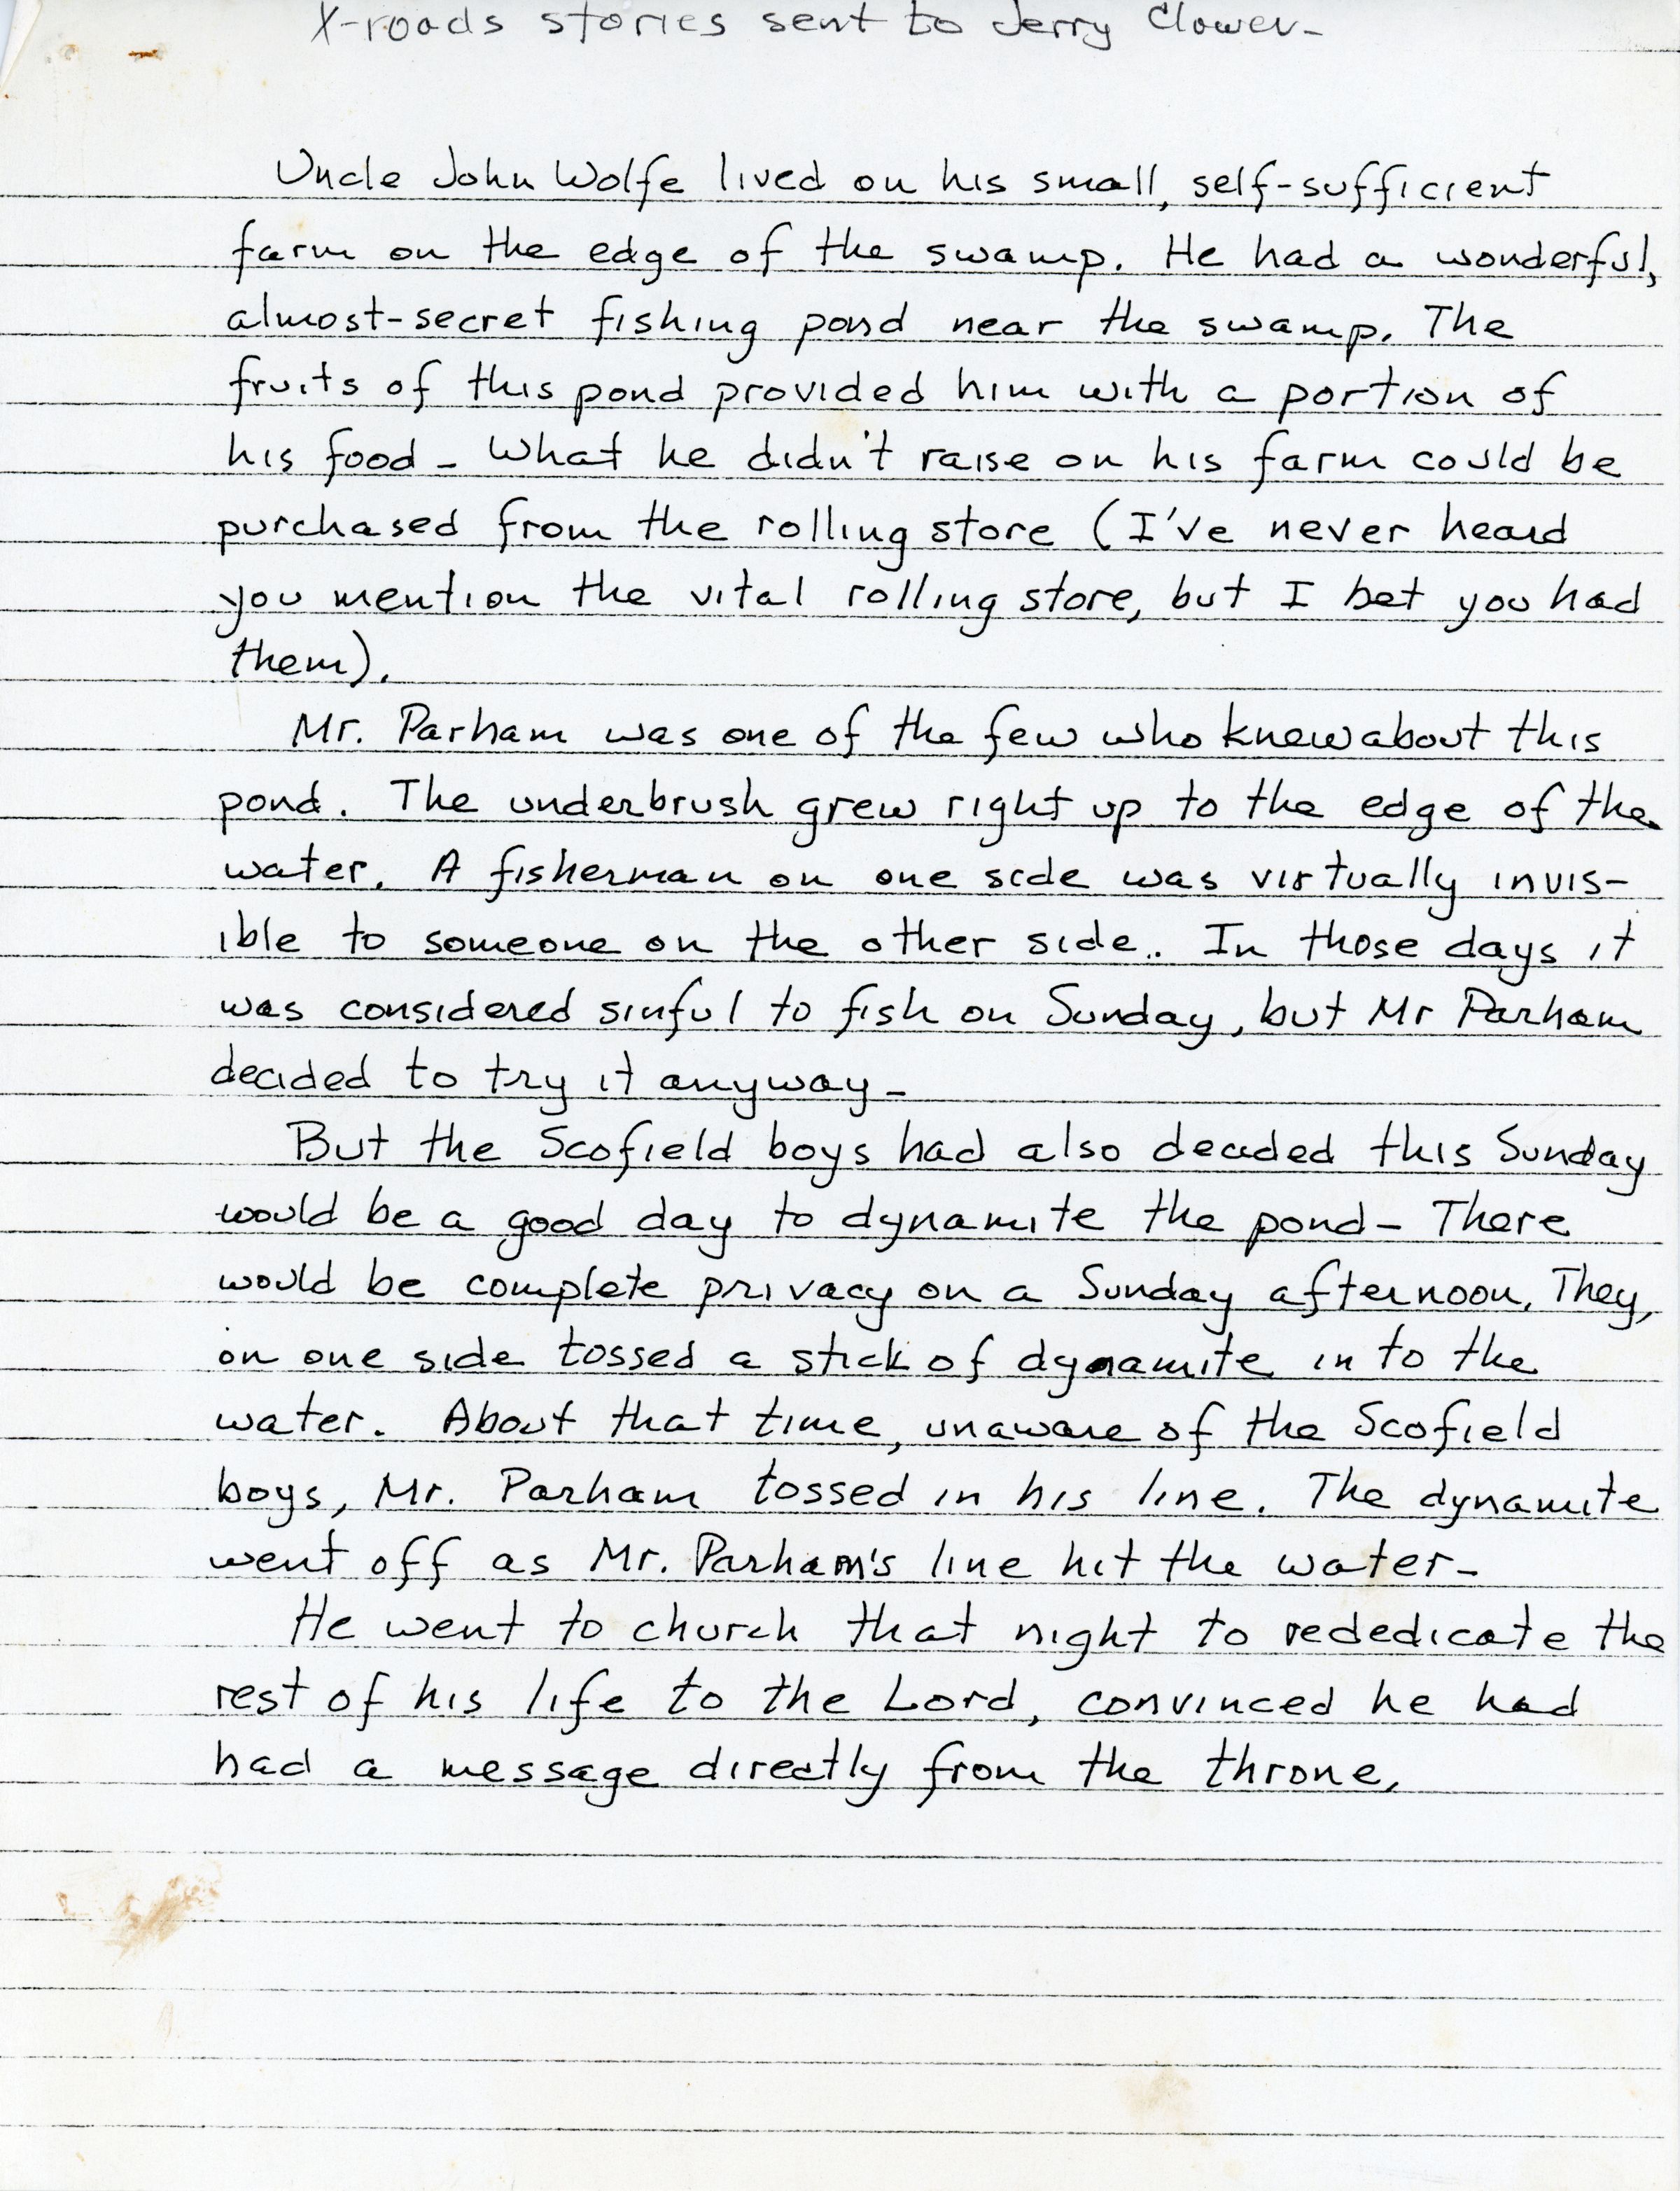 X-roads stories sent to Jerry Clower-
Uncle John Wolfe lived on his small, self-sufficient
farm on the edge of the swamp. He had a wonderful,
almost-secret fishing pond near the swamp. The
fruits of this pond provided him with a portion of
his food - What he didn't raise on his farm could be
purchased from the rolling store (I've never heard
you mention the vital rolling store, but I bet you had
them).
Mr. Parham was one of the few who knew about this
pond. The underbrush grew right up to the edge of the
water. A fisherman on one side was virtually invis-
ible to someone on the other side.. In those days it
was considered sinful to fish on Sunday, but Mr Parham
decided to try it anyway-
But the Scofield boys had also decided this Sunday
would be a good day to dynamite the pond- There
would be complete privacy on a Sunday afternoon. They,
on one side tossed a stick of dynamite in to the
water. About that time, unaware of the Scofield
boys, Mr. Parham tossed in his line. The dynamite
went off as Mr. Parham's line hit the water-
He went to church that night to rededicate the
rest of his life to the Lord, convinced he had
had a message directly from the throne.